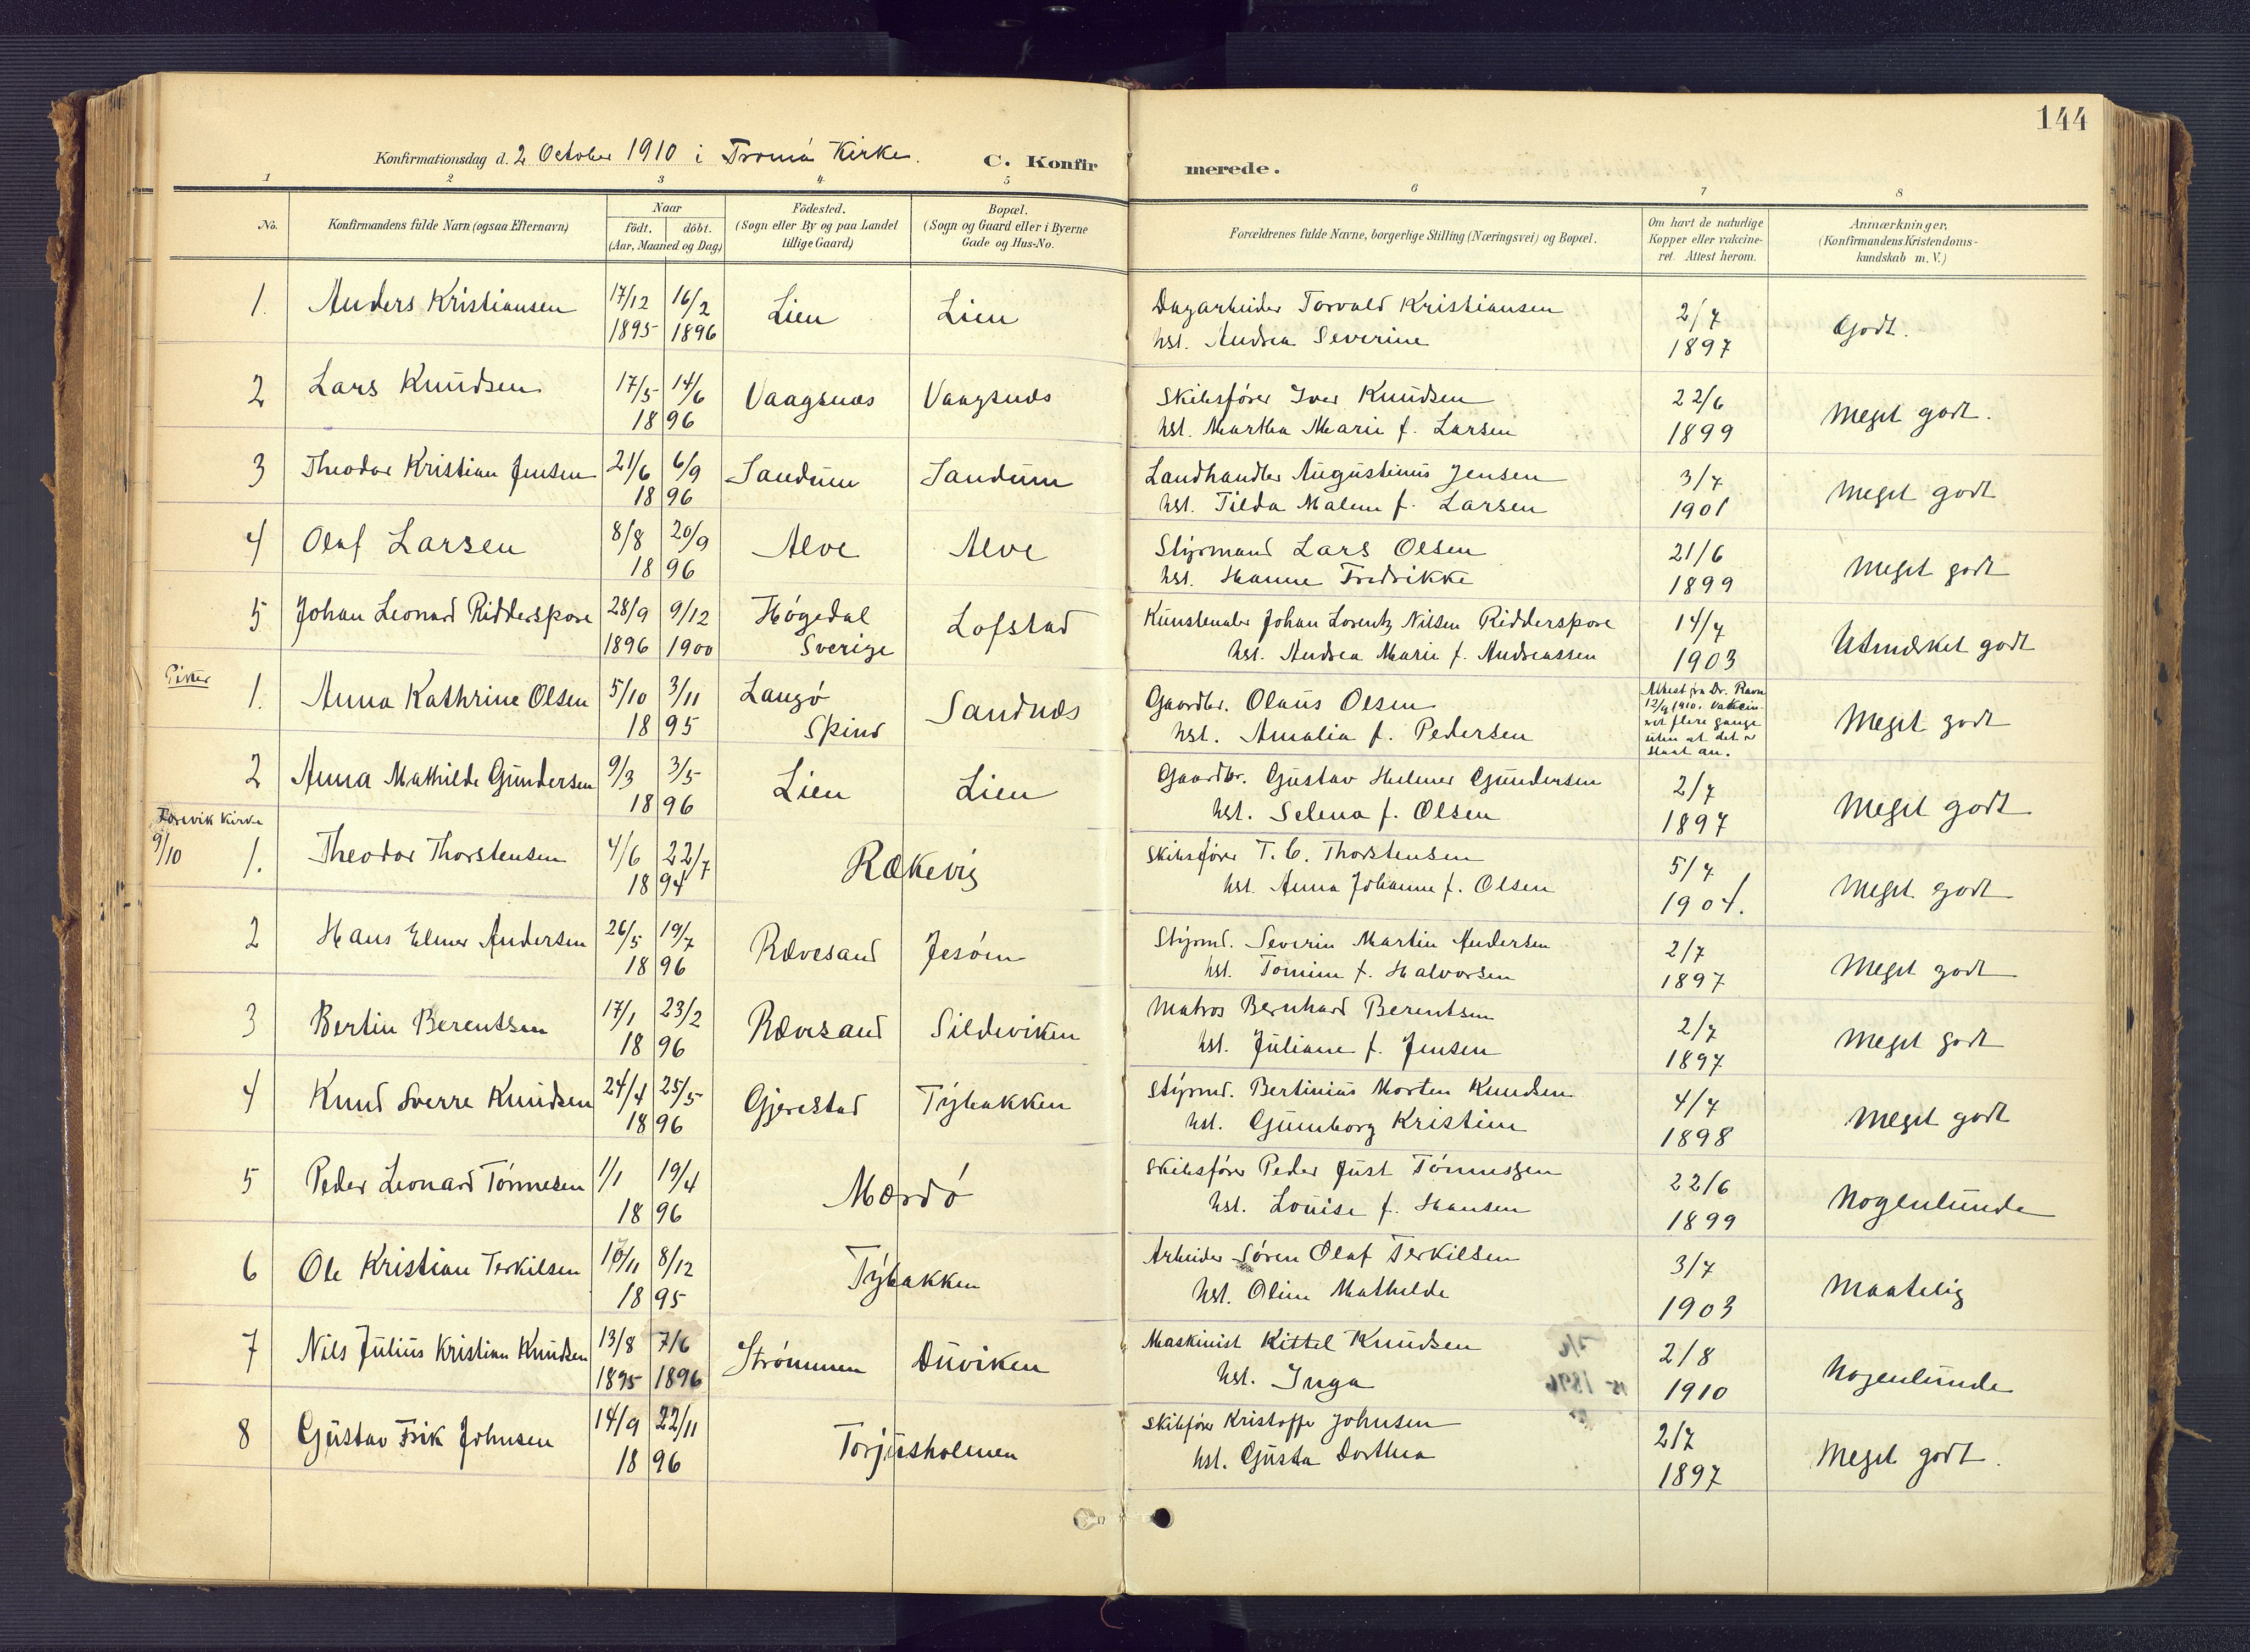 144
Konfirmationsdag d. 2 October 1910 i Tromø Kirke. C. Konfir merede.
1 2 3 4 5 6 7 8
No. Konfirmandens fulde Navn (ogsaa Efternavn) Naar født. døbt. (Aar, Maaned og Dag) Fødested. (Sogn eller By og paa Landet tillige Gaard) Bopæl. (Sogn og Gaard eller i Byerne Gade og Hus-No. Forældrenes fulde Navne, borgerlige Stilling (Næringsvei) og Bopæl. Om havt de naturlige Kopper eller vakcineret. Attest herom. Anmærkninger, (Konfirmandens Kristendomskundskab m. V.)
1. Anders Kristiansen 17/12 1895 16/2 1896 Lien Lien Dagarbeider Torvald Kristiansen 2/7 1897 Godt.
hst. Andrea Severine
2 Lars Knudsen 17/5 14/6 1896 Vaagsnæs Vaagsnæs Skibsfører Iver Knudsen 22/6 1899 Meget godt.
hst. Martha Marie f. Larsen
3 Theodor Kristian Jensen 21/6 6/9 1896 Sandum Sandum Landhandler Augustinus Jensen 3/7 1901 Meget godt
hst. Tilda Malene f. Larsen
4 Olaf Larsen 8/8 20/9 1896 Alve Alve Styrmand Lars Olsen 21/6 1899 Meget godt
hst. Hanne Fredrikke
5 Johan Leonard Ridderspore 28/9 1896 9/12 1900 Høgedal Sverige Lofstad Kunstmaler Johan Lorentz Nilsen Ridderspore 14/7 1903 Utmærket godt
hst. Andrea Marie f. Andreassen
Piker
1. Anna Kathrine Olsen 5/10 3/11 1895 Langø Spind Sandnæs Gaardbr. Olaus Olsen Attest fra Dr. Ravn 12/9 1910. vakcinert flere gange uten at det er slaat an. Meget godt
hst. Amalia f. Pedersen
2 Anna Mathilde Gundersen 9/3 3/5 1896 Lien Lien Gaardbr. Gustav Helmer Gundersen 2/7 1897 Meget godt
hst. Selena f. Olsen
Færvik Kirke
9/10
1. Theodor Thorstensen 4/6 22/7 1894 Rækevig Skibsfører T. C. Thorstensen 5/7 1904. Meget godt
hst. Anna Johanne f. Olsen
2 Hans Elmer Andersen 26/5 19/7 1896 Rævesand Jesøen Styrmd. Severin Martin Andersen 2/7 1897 Meget godt
hst. Tomine f. Halvorsen
3 Bertin Berentsen 17/1 23/2 1896 Rævesand Sildeviken Matros Bernhard Berentsen 2/7 1897 Meget godt
hst. Juliane f. Jensen
4 Knud Sverre Knudsen 24/4 25/5 1896 Gjerestad Tybakken Styrmd. Bertinius Morten Knudsen 4/7 1898 Meget godt
hst. Gunnborg Kristine
5 Peder Leonard Tønnesen 1/1 19/4 1896 Mærdø Skibsfører Peder Just Tønnessen 22/6 1899 Nogenlunde
hst. Louise f. Hansen
6 Ole Kristian Terkilsen 10/11 8/12 1895 Tybakken Arbeider Søren Olaf Terkilsen 3/7 1903 Maatelig
hst. Oline Mathilde
7 Nils Julius Kristian Knudsen 13/8 1895 7/6 1896 Strømmen Duviken Maskinist Kittel Knudsen 2/8 1910 Nogenlunde
hst. Inga
8 Gustav Frik Johnsen 14/9 22/11 1896 Torjusholmen Skibsfører Kristoffer Johnsen 2/7 1897 Meget godt.
hst. Gusta Dorthea